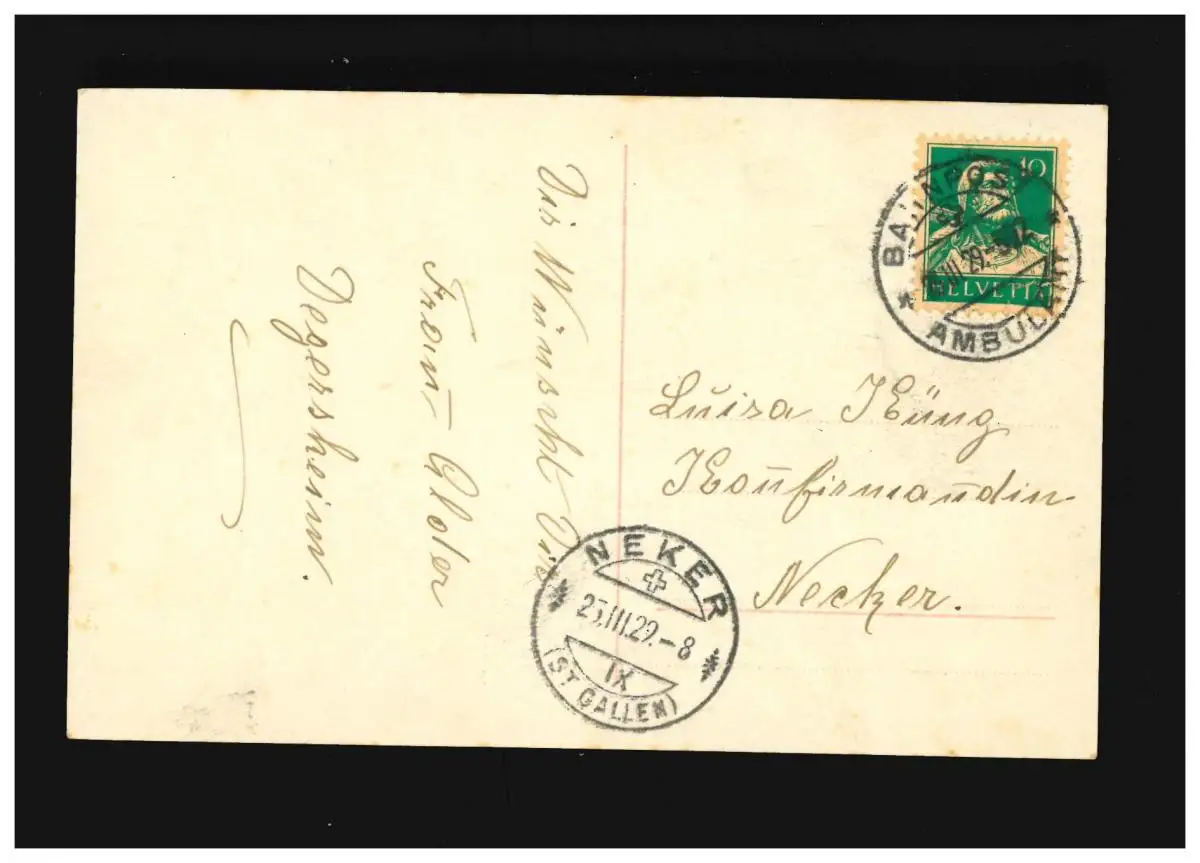 Dir Wünscht Die
Frau Alder
Degersheim.
10
HELVETIA
BAHNPOST
III 29.
AMBULANT
Luisa Küng
Konfirmandin
Necker.
NEKER
23.III.29.-8
IX
(ST GALLEN)